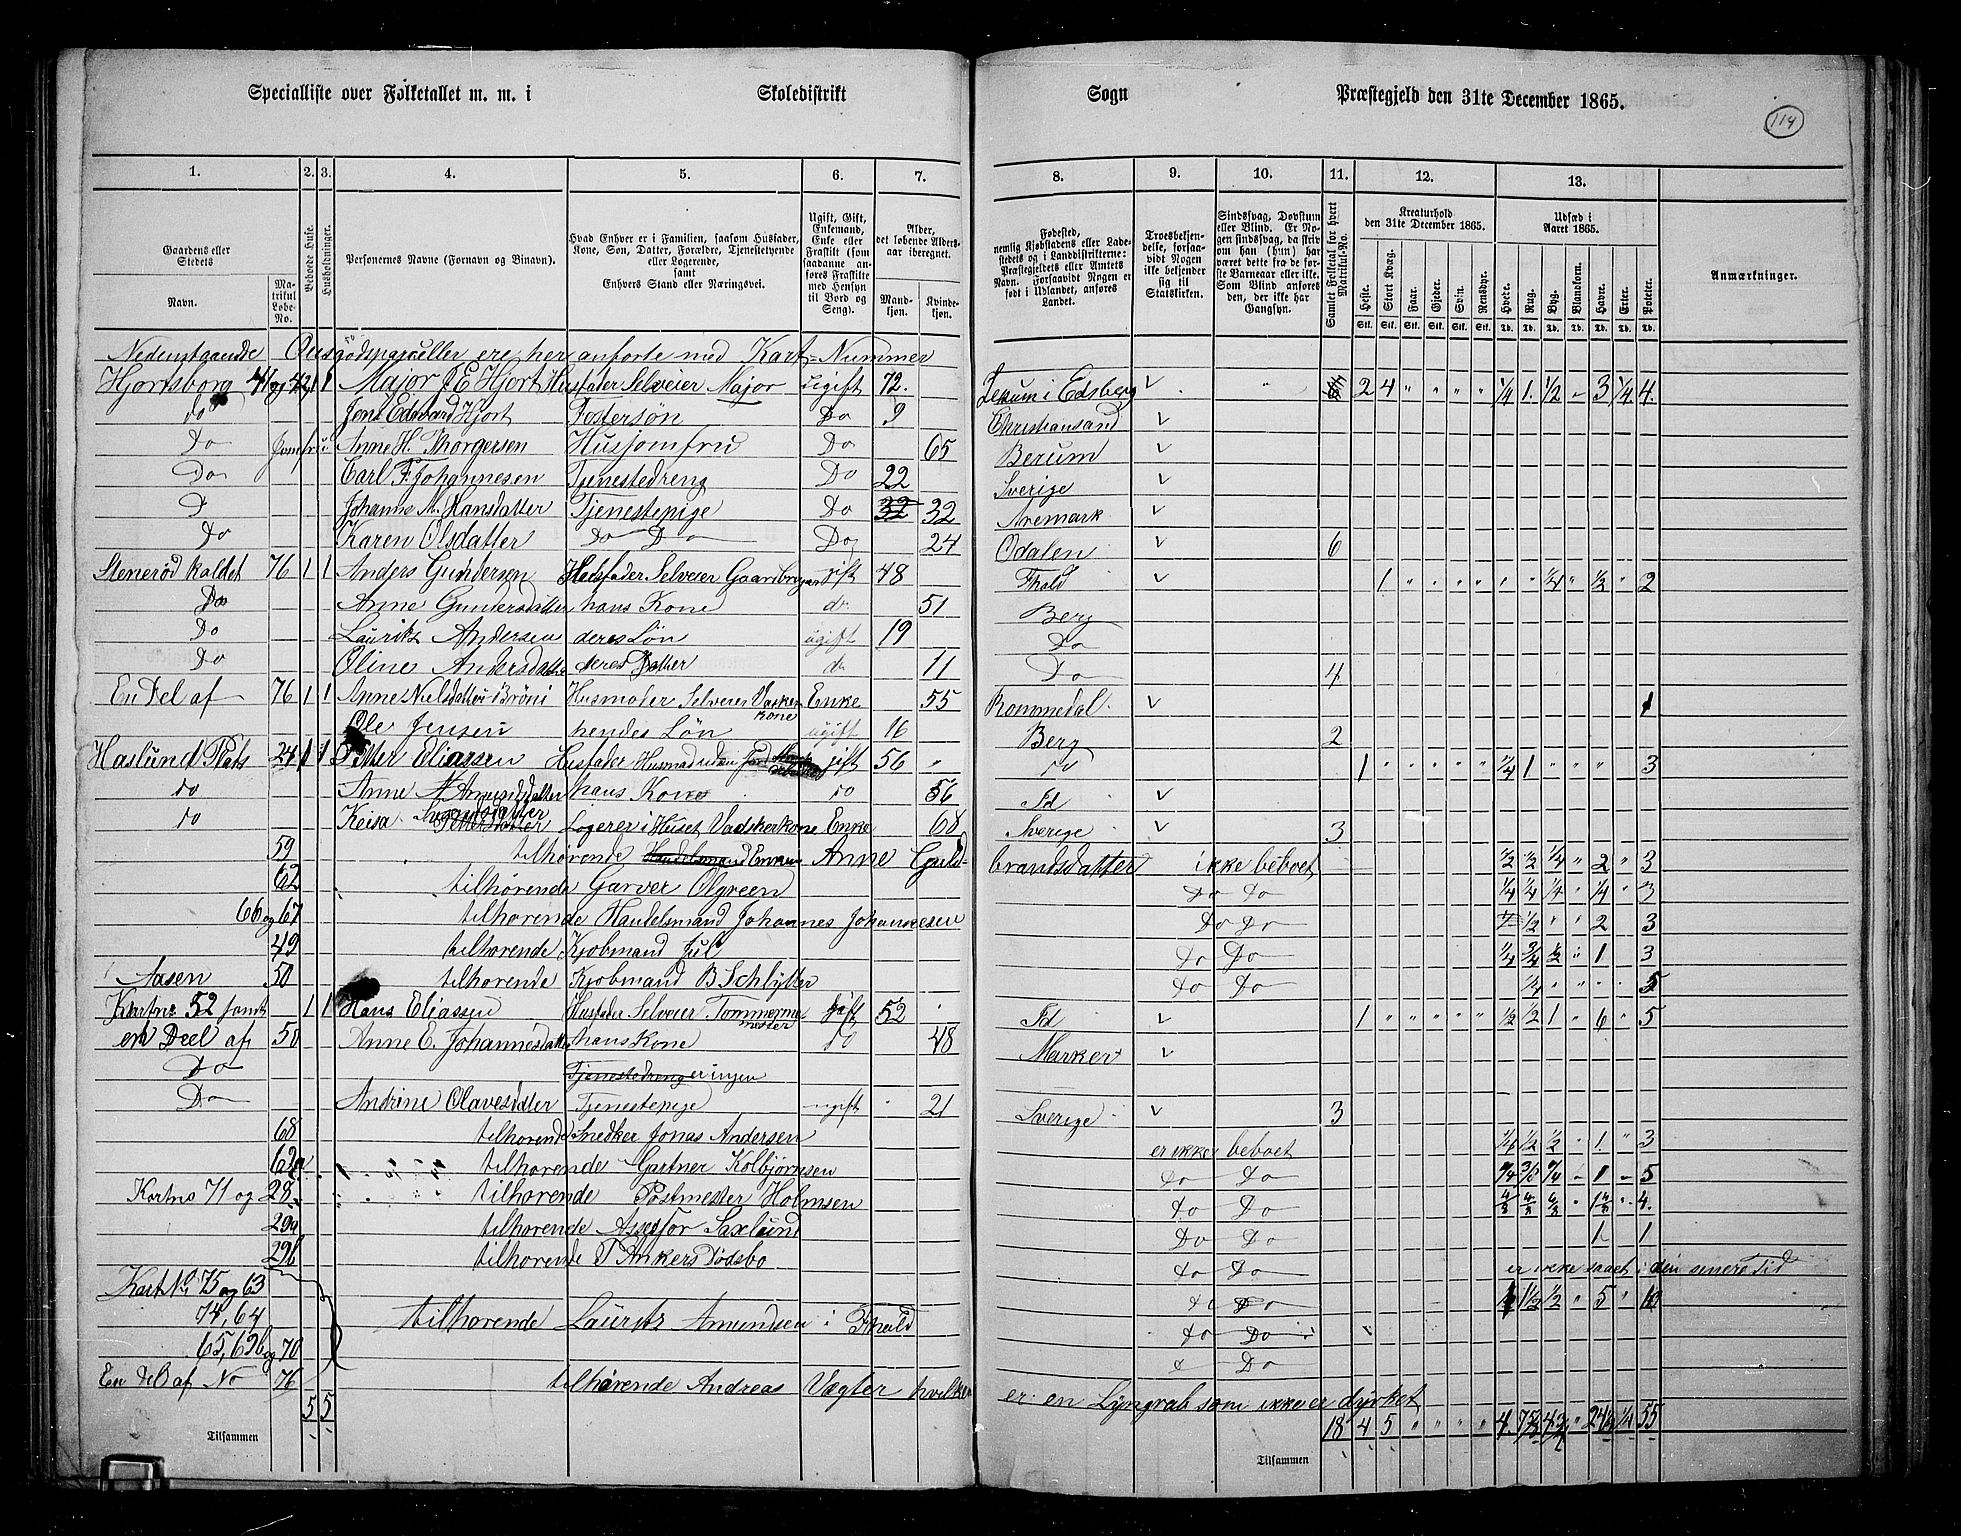 Specialliste over Folketallet m. m. i Skoledistrikt Sogn Præstegjeld den 31te December 1865.
114
1. 2. 3. 4. 5. 6. 7. 8. 9. 10. 11. 12. 13.
Gaardens eller Stedets
Navn. Matrikul Løbe-No.
Beboede Huse.
Husholdninger.
Personernes Navne (Fornavn og Binavn).
Hvad Enhver er i Familien, saasom Husfader, Kone, Søn, Datter, Forældre, Tjenestetyende eller Logerende, samt Enhvers Stand eller Næringsvei.
Ugift, Gift, Enkemand, Enke eller Fraskilt (som saadanne anføres Fraskilte med Hensyn til Bord og Seng).
Alder, det løbende Aldersaar iberegnet.
Mandkjøn. Kvindekjøn.
Fødested, nemlig Kjøbstadens eller Ladestedets og i Landdistrikterne: Præstegjeldets eller Amtets Navn. Forsaavidt Nogen er født i Udlandet, anføres Landet.
Troesbekjendelse, forsaavidt Nogen ikke bekjender sig til Statskirken.
Sindssvag, Døvstum eller Blind. Er Nogen sindssvag, da skriv om han (hun) har været dette fra de første Barneaar eller ikke. Som Blind anføres den, der ikke har Gangsyn.
Samlet Folketal for hvert Matrikul-No.
Kreaturhold den 31te December 1865.
Heste. Stort Kvæg. Faar. Gjeder. Svin. Rensdyr.
Udsæd i Aaret 1865.
Hvede. Rug. Byg. Blandkorn. Havre. Erter. Poteter.
Anmærkninger.
Nedenstaaende ere her anførte med Kart-Nummer
Hjortsborg 41 og 42 1 1 Major J E Hjort Husfader Selveier Major ugift 72 Edsberg 2 4 " " " " 1/4 1 1/2 - 3 1/4 4
do Jens Edvard Hjort Fostersøn Do 9 Christiansand
Do Jomfru Anne H. Thorgersen Husjomfru Do 65 Berum
Do Carl F Johannesen Tjenestedreng Do 22 Sverige
Johanne M. Hansdatter Tjenestepige Do 32 Aremark
Do Karen Olsdatter Do Do Do 24 Odalen 6
Stenerød kaldet 76 1 1 Anders Gundersen Husfader Selveier Gaardbruger gift 48 Fhald 1 " " " " " " 1/4 " 1/2 " 2
Do Anne Gundersdatter hans Kone do 51 Berg
Do Lauritz Andersen deres Søn ugift 19 Do
Do Oline Andersdatter deres Datter do 11 Do 4
En Del af 76 1 1 Anne Nielsdatter Brøni Husmoder Selveier Vaskerkone Enke 55 Rommedal 1
Ole Jensen hendes Søn ugift 16 Berg 2
Haslund Plads 24 1 1 Petter Eliassen Husfader Husmand uden Jord gift 56 " do 1 " " " " 1/4 1 " " " 3
do Anne A. Amundsdatter hans Kone do 56 Id
do Keisa Logerer i Huset Vadskerkone Enke 68 Sverige 3
59 tilhørende Anne Guldbrandsdatter ikke beboet 1/2 1/2 1/4 " 2 " 3
62 tilhørende Garver Olgreen Do Do 1/4 1/4 1/4 " 1/4 " 3
66 og 67 tilhørende Handelsmand Johannes Johannesen Do Do 1/2 " " 2 3
49 tilhørende Kjøbmand Jul Do Do 1/4 3/4 1/2 " 1 3
Aasen 50 tilhørende Kjøbmand B Schlytter Do Do 1/4 " " " 5
Kartno 52 samt 1 1 Hans Eliassen Husfader Selveier Tømmermester gift 52 Id 1 " " " " " 1/2 1/2 1 " 6 " 5
en Deel af 50 Anne E. Johannesdatter hans Kone do 48 Marker
Do Tjenestedreng er ingen
Do Andrine Olavesdatter Tjenestepige ugift 21 Sverige 3
68 tilhørende Snedker Jonas Andersen er ikke beboet 1/4 1/2 1/2 " 1 " 3
62a tilhørende Gartner Kolbjørnsen Do Do 1 5
Kartno 71 og 28 tilhørende Postmester Holmsen Do Do 4
29a tilhørende Assessor Saxlund Do Do 1 1
29b tilhørende P Ankers Dødsbo Do Do er ikke saaet i den senere Tid
Kart No 75 og 63 do Do 1 1/2 1/2 " 5 " 10
74, 64 tilhørende Lauritz Amundsen i Fhald Do Do
65, 69b og 70 Do
En Del af No 76 tilhørende Andreas Vægter hvilken er en Lyngrab som ikke er dyrket
5 5 18 4 5 " " " " 4 " 1/4 55
Tilsammen Tilsammen